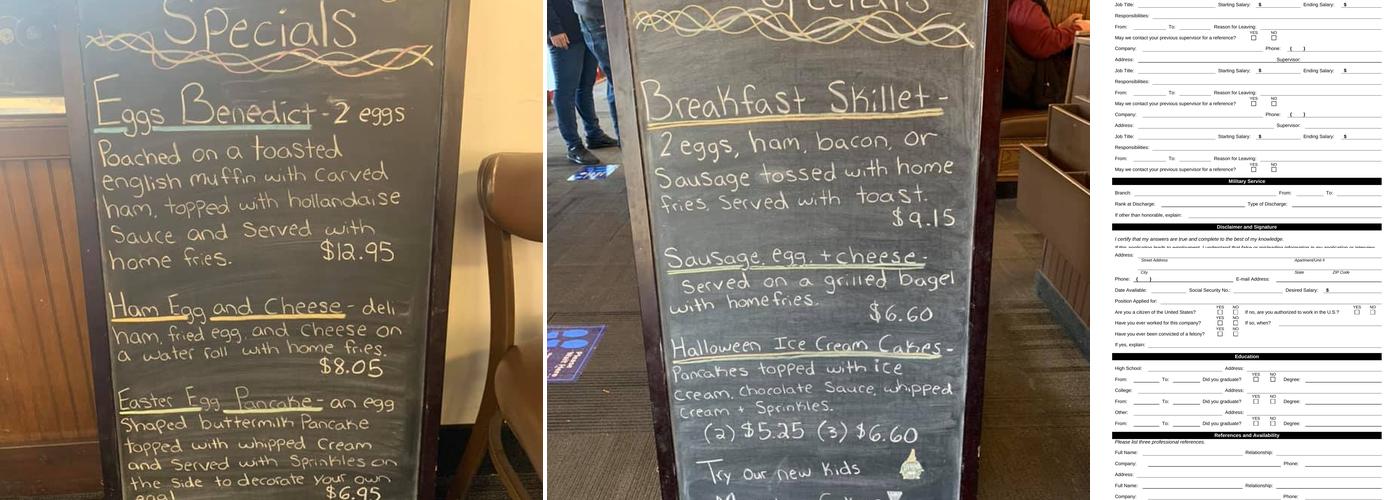 Specials
Eggs Benedict - 2 eggs
Poached on a toasted
english muffin with carved
ham, topped with hollandaise
Sauce and Served with
home fries. $12.95
Ham Egg and Cheese - deli
ham, fried egg, and cheese on
a water roll with home fries.
$8.05
Easter Egg Pancake - an egg
Shaped buttermilk Pancake
topped with whipped Cream
and Served with Sprinkles on
the side to decorate your own
egg! $6.95
Specials
Breakfast Skillet -
2 eggs, ham, bacon, or
Sausage tossed with home
fries. Served with toast.
$9.15
Sausage, egg, + cheese -
Served on a grilled bagel
with homefries.
$6.60
Halloween Ice Cream Cakes -
Pancakes topped with ice
Cream, chocolate Sauce, whipped
Cream + Sprinkles.
(2) $5.25 (3) $6.60
Try Our new Kids
Job Title: Starting Salary: $ Ending Salary: $
Responsibilities:
From: To: Reason for Leaving:
YES NO
May we contact your previous supervisor for a reference?
Company: Phone: ( )
Address: Supervisor:
Job Title: Starting Salary: $ Ending Salary: $
Responsibilities:
From: To: Reason for Leaving:
YES NO
May we contact your previous supervisor for a reference?
Company: Phone: ( )
Address: Supervisor:
Job Title: Starting Salary: $ Ending Salary: $
Responsibilities:
From: To: Reason for Leaving:
YES NO
May we contact your previous supervisor for a reference?
Military Service
Branch: From: To:
Rank at Discharge: Type of Discharge:
If other than honorable, explain:
Disclaimer and Signature
I certify that my answers are true and complete to the best of my knowledge.
Address:
Street Address Apartment/Unit #
City State ZIP Code
Phone: ( ) E-mail Address:
Date Available: Social Security No.: Desired Salary: $
Position Applied for:
YES NO YES NO
Are you a citizen of the United States? If no, are you authorized to work in the U.S.?
YES NO
Have you ever worked for this company? If so, when?
YES NO
Have you ever been convicted of a felony?
If yes, explain:
Education
High School: Address:
YES NO
From: To: Did you graduate? Degree:
College: Address:
YES NO
From: To: Did you graduate? Degree:
Other: Address:
YES NO
From: To: Did you graduate? Degree:
References and Availability
Please list three professional references.
Full Name: Relationship:
Company: Phone:
Address:
Full Name: Relationship:
Company: Phone: